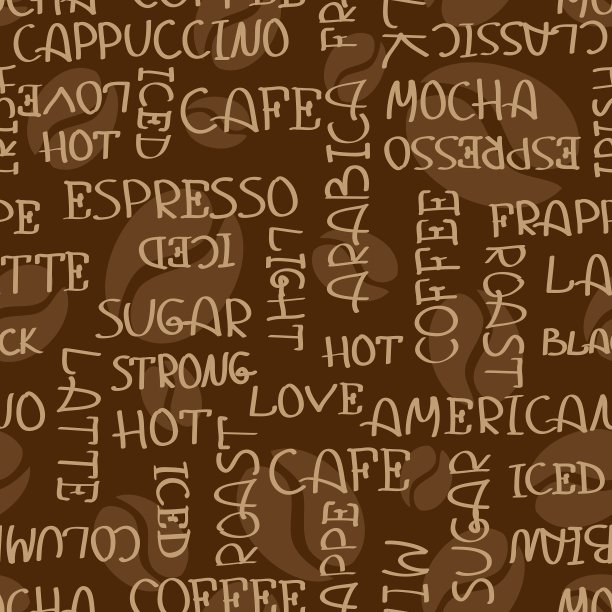 CAPPUCCINO
CLASSIC
LOVE
ICED
CAFE
MOCHA
HOT
ARABICA
ESPRESSO
ESPRESSO
COFFEE
FRAPP
ICED
LIGHT
ROAST
TTE
LA
SUGAR
HOT
BLA
CK
STRONG
LATTE
LOVE
AMERICAN
NO
HOT
ROAST
CAFE
SUGAR
ICED
ICED
COLUM
APPE
BIAN
COFFEE
MO